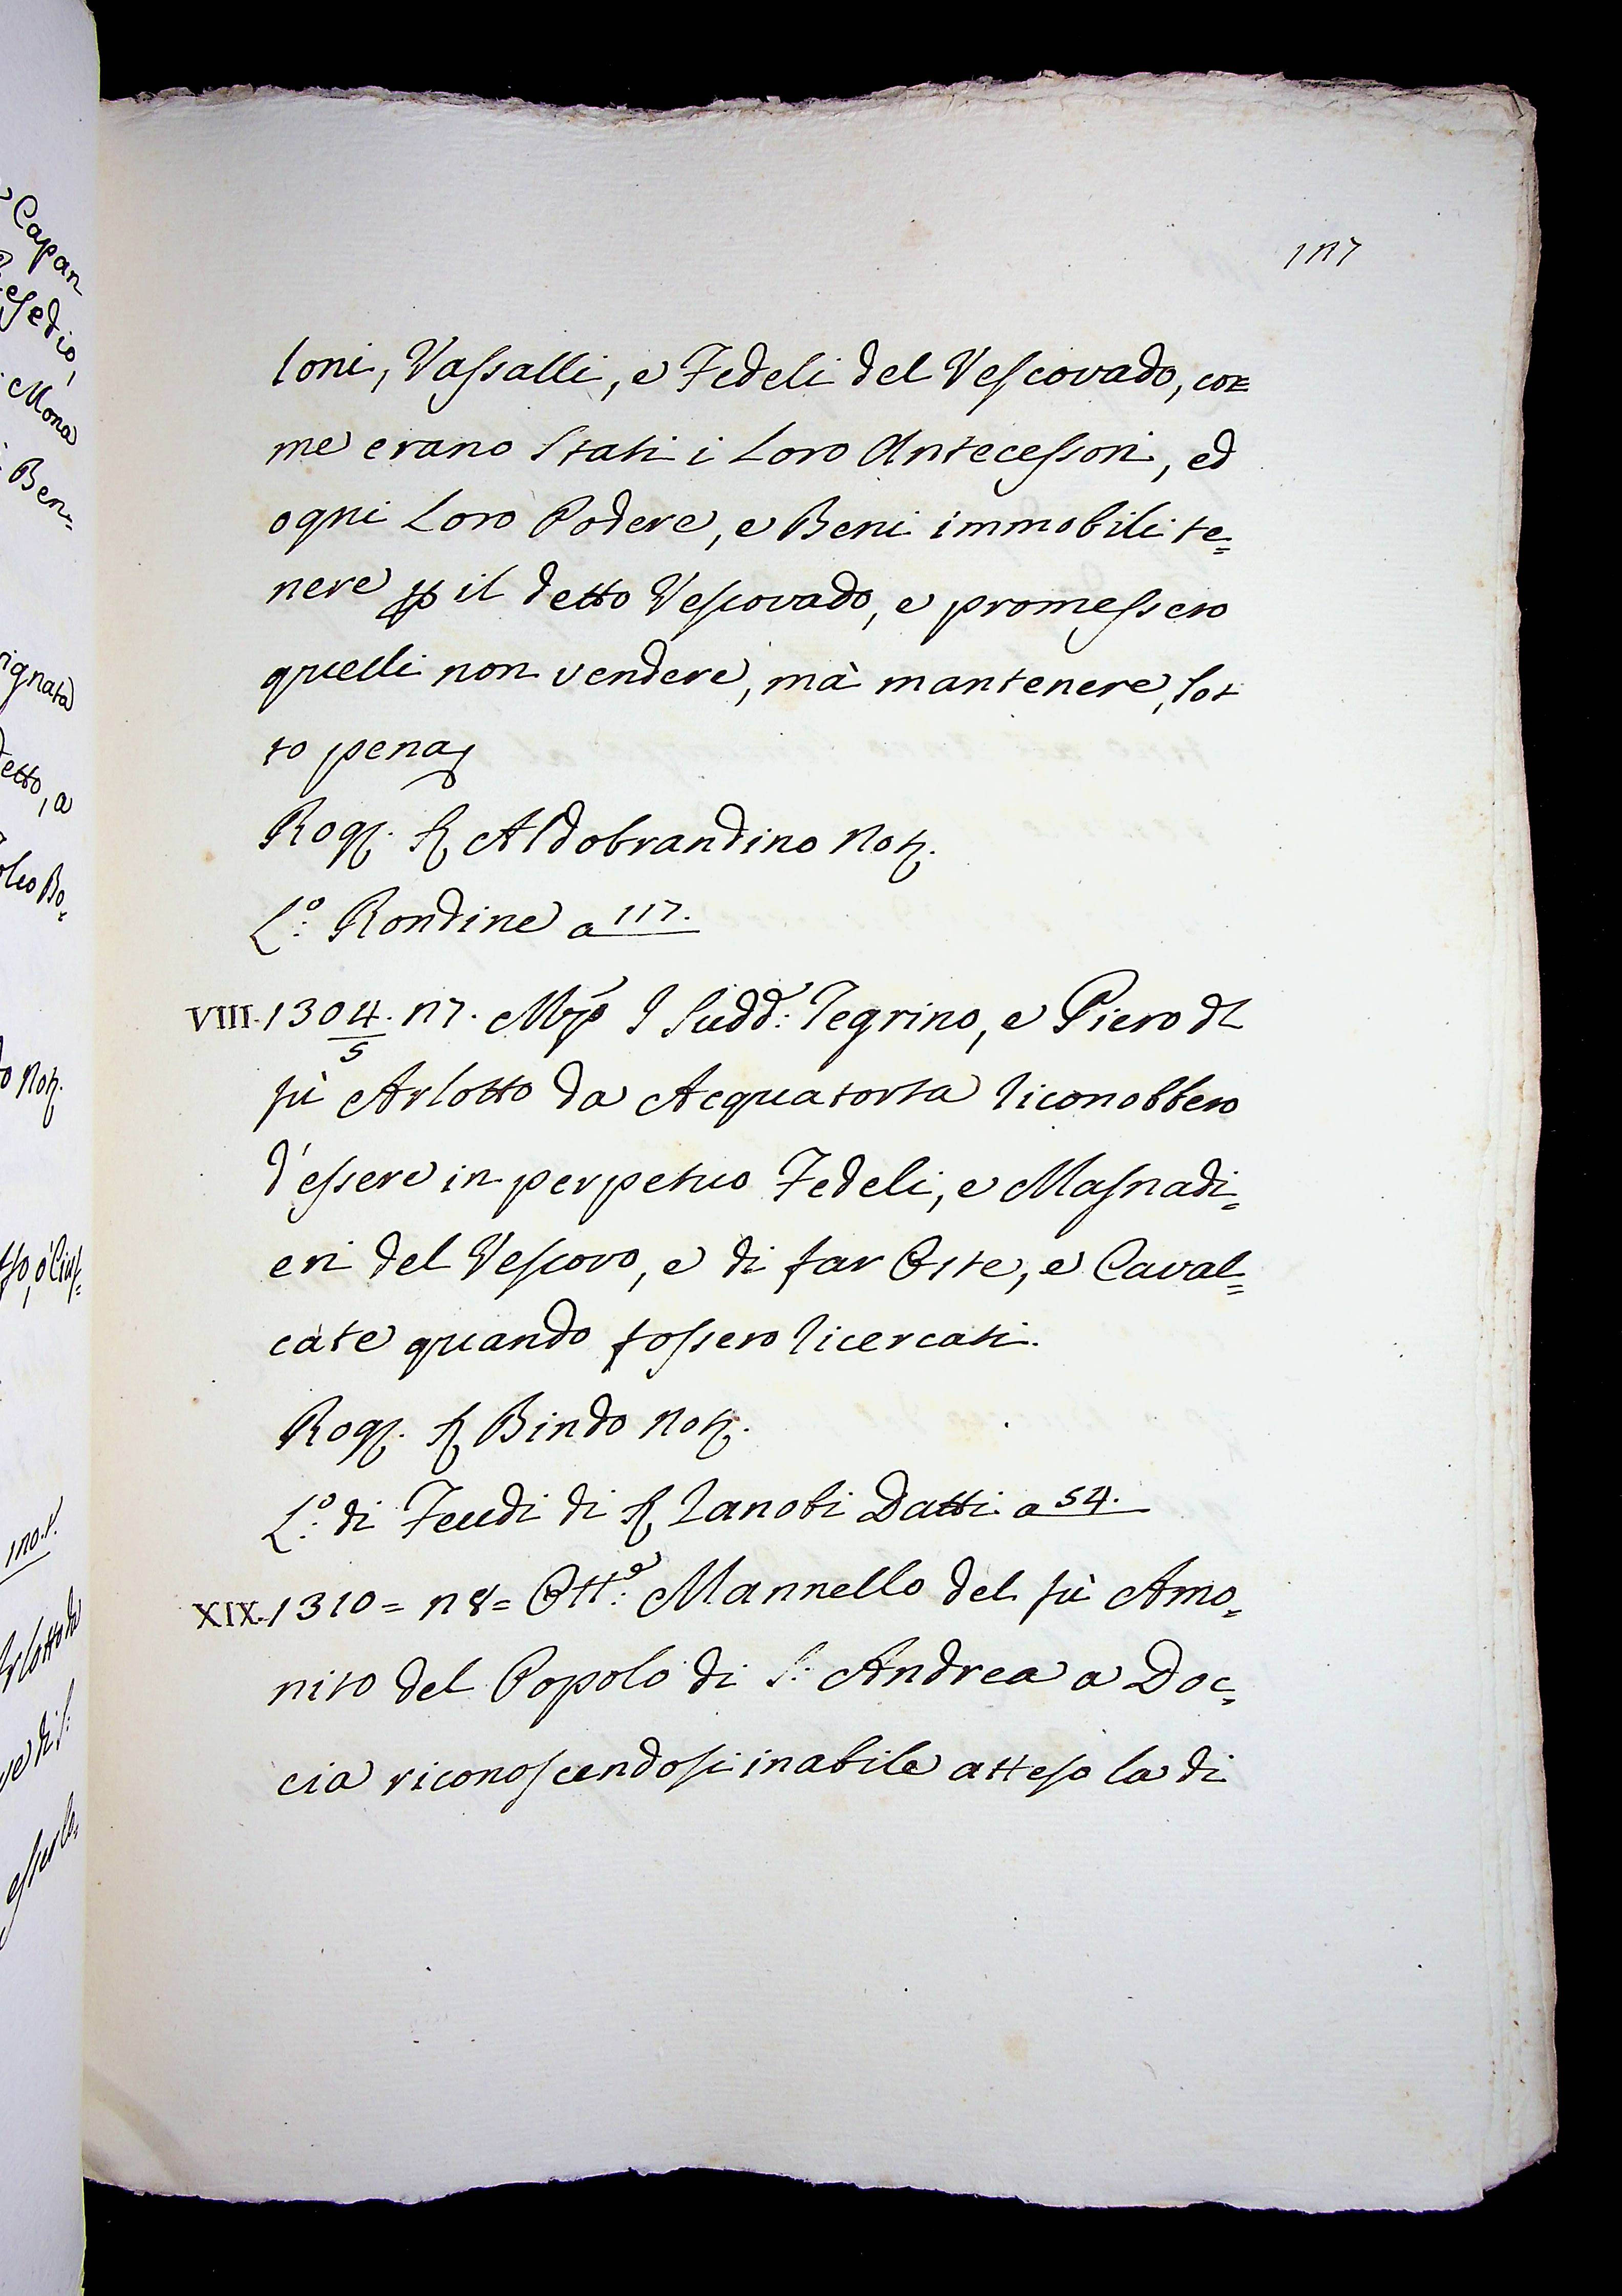 127
loni, Vassalli, e Fedeli del Vescovado, co=
me erano stati i Loro Antecessori, ed
ogni Loro Podere, e Beni immobili te=
nere p il detto Vescovado, e promessero
quelli non vendere, mà mantenere, sot
to pena
Rog. S Aldobrandino Not.
L.º Rondine a 117.
VIII. 1304/5. 27. Mzo I Sudd.i Tegrino, e Piero dl
fù Arlotto da Acquatorta riconobbero
d'essere in perpetuo Fedeli, e Masnadi=
eri del Vescovo, e di far Oste, e Caval=
cate quando fossero ricercati.
Rog. S Bindo Not.
L.º di Feudi di S Zanobi Datti a 54.
XIX. 1310 = 28 = Ott.e Mannello del fù Amo=
nito del Popolo di S: Andrea a Doc=
cia riconoscendosi inabile atteso la di
Capan
Mona
Ben=
rignata
etto, a
o Not.